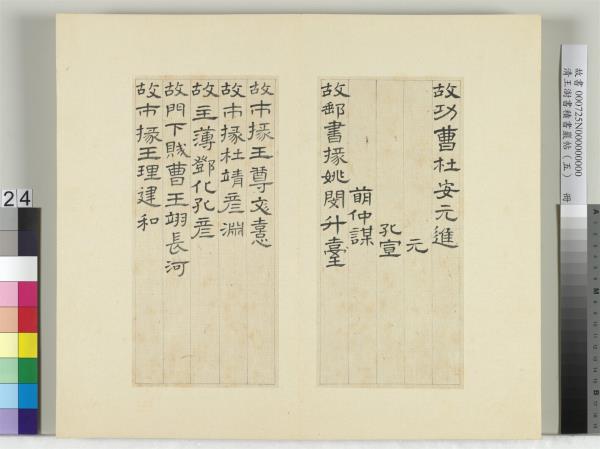 故功曹杜安元進
元
孔宣
萌仲謀
故郵書掾姚閔升臺
故市掾王尊文憙
故市掾杜靖彥淵
故主薄鄧化孔彥
故門下賊曹王翊長河
故市掾王理建和
故書000725N000000000
清王澍書積書巖帖（五） 冊
24
A
M
B